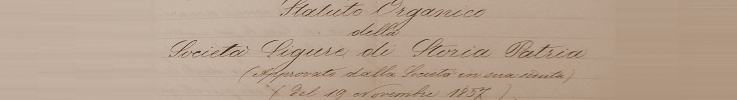 Statuto Organico
della
Società Ligure di Storia Patria
(Approvato dalla Società in sua seduta)
(del 19 Novembre 1857)